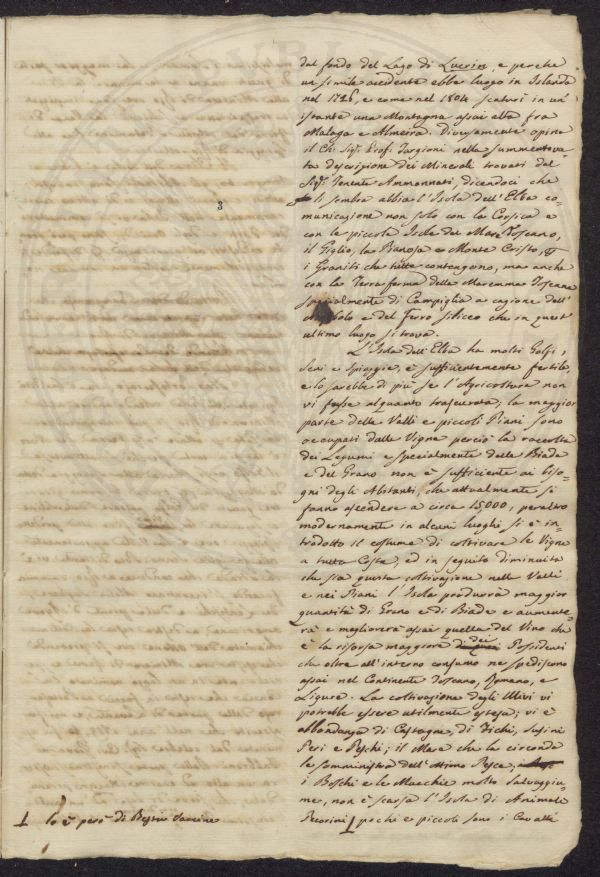 dal fondo del Lago di Lucrin, e perche
un simile accidente ebbe luogo in Islanda
nel 1726, e come nel 1804 scaturì in un'
istante una Montagna assai alta fra
Malaga e Almeira. Diversamente opina
il Ch: Sig: Prof: Targioni nella summentova-
ta descrizione dei Minerali trovati dal
Sig: Tenente Ammannati, dicendoci che
li sembra abbia l'Isola dell'Elba co=
municazione non solo con la Corsica e
con le piccole Isole del Mare Toscano,
il Giglio, la Pianosa e Monte Cristo,
i Graniti che tutte contengono, ma anche
con la Terra ferma della Maremma Toscana
specialmente di Campiglia a cagione dell'
e del Ferro siliceo che in quest'
ultimo luogo si trova.
L'Isola dell'Elba ha molti Golfi,
Seni e Spiaggie, è sufficientemente fertile,
e lo sarebbe di più se l'Agricoltura non
vi fosse alquanto trascurata; la maggior
parte delle Valli e piccoli Piani sono
occupati dalle Vigne perciò la raccolta
dei Legumi e specialmente delle Biade
e del Grano non è sufficiente ai biso=
gni degli Abitanti, che attualmente si
fanno ascendere a circa 15000, peraltro
modernamente in alcuni luoghi si è in=
trodotto il costume di coltivare le Vigne
a tutta Costa, ed in seguito diminuita
che sia questa coltivazione nelle Valli
e nei Piani l'Isola produrrà maggior
quantità di Grano e di Biade e aumente=
rà e migliorerà assai quella del Vino che
è la risorsa maggiore dei Possidenti
che oltre all'interno consumo ne spediscono
assai nel Continente Toscano, Romano, e
Ligure. La coltivazione degli Ulivi vi
potrebbe essere utilmente estesa; vi è
abbondanza di Castagne, di Fichi, Susini
Peri e Peschi; il Mare che la circonda
le somministra dell'ottimo Pesce;
i Boschi e le Macchie molto Salvaggiu=
me, non è scarsa l'Isola di Animali
Pecorini ⊥ pochi e piccoli sono i Cavalli
⊥ lo è però di Bestie Vaccine
3